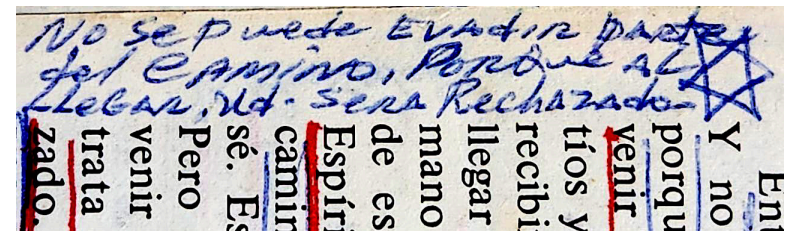 No Se Puede Evadir parte
del Camino, Porque al
LLegar, Ud. Sera Rechazado
Ent
Y no
porqu
venir
tíos y
recibi
llegar
mano
de es
Espíri
camin
sé. Es
Pero
venir
trata
zado.